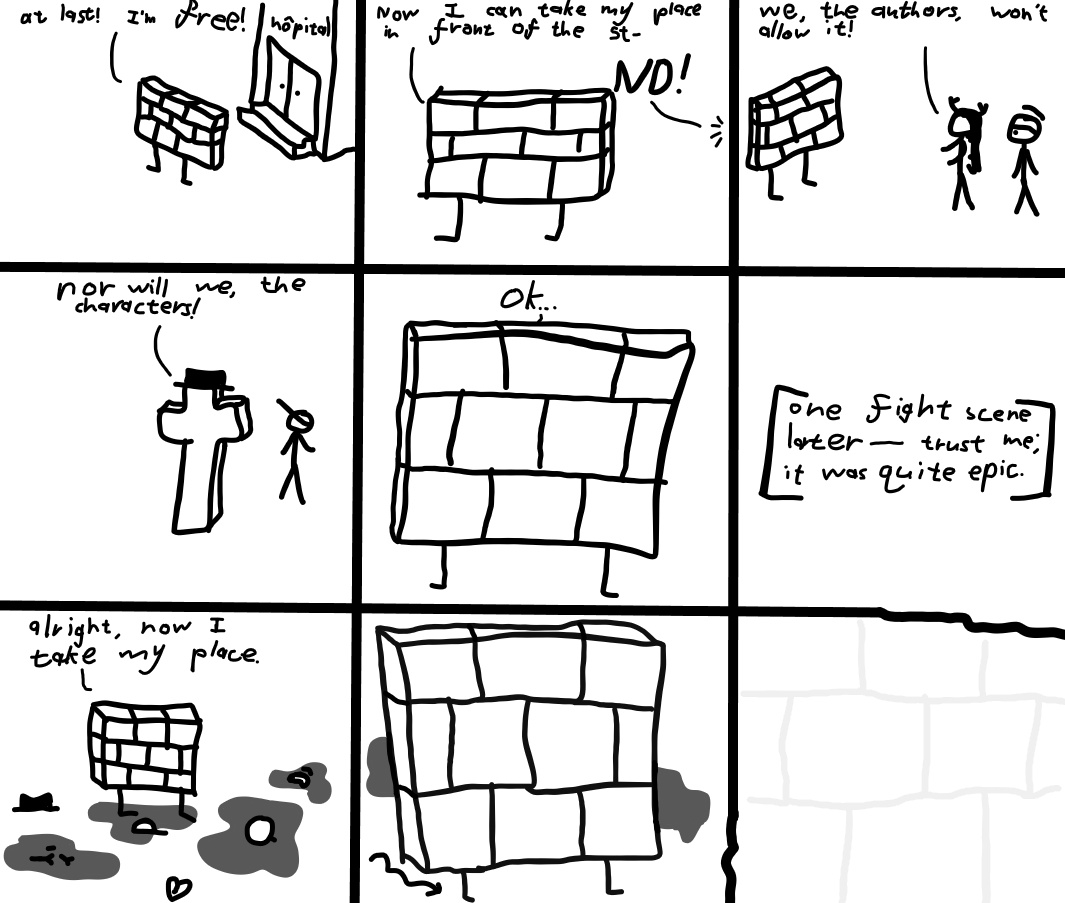 at last! I'm free!
hôpital
Now I can take my place
in front of the st-
NO!
we, the authors, won't
allow it!
nor will we, the
characters!
Ok...
one fight scene
later — trust me;
it was quite epic.
alright, now I
take my place.